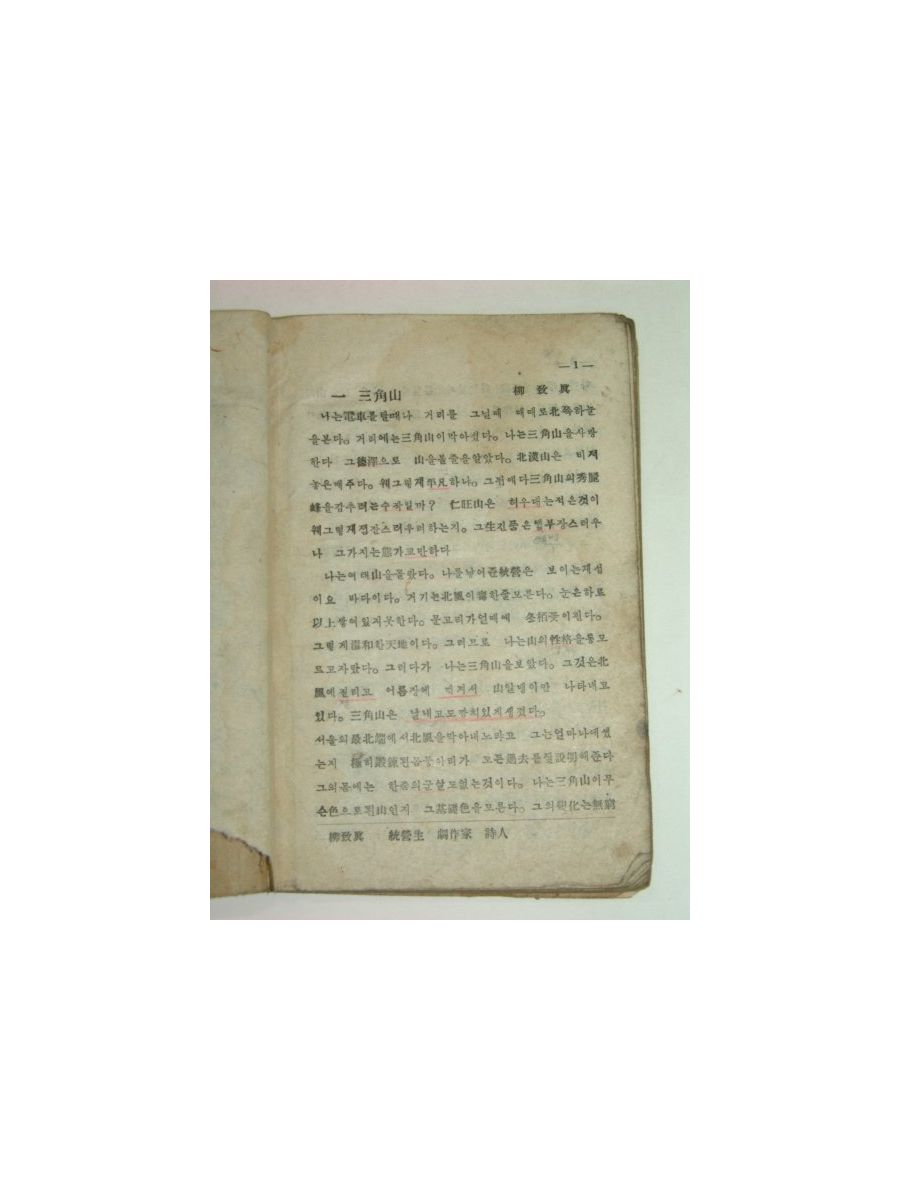 —1—
一 三角山 柳致眞
나는電車를탈때나 거리를 그닐때 때때로北쪽하늘
을본다。거리에는三角山이막아섰다。나는三角山을사랑
한다 그德澤으로 山을볼줄을알았다。北漢山은 비저
놓은메주다。웨그렇게平凡하나。그점에다三角山의秀麗
峰을감추려는수작일까? 仁旺山은 허우대는적은것이
웨그렇게점잔스러우리하는지。그生긴품은별부장스러우
나 그가지는態가교만하다
나는여태山을몰랐다。나를낳어준統營은 보이는게섬
이요 바다이다。거기는北風이毒한줄모른다。눈은하로
以上쌓여있지못한다。문고리가얼때에 冬栢꽃이핀다。
그렇게溫和한天地이다。그러므로 나는山의性格을통모
르고자랐다。그러다가 나는三角山을보았다。그것은北
風에질리고 어름장에 비저서 山알맹이만 나타내고
있다。三角山은 날내고도까치있게생겼다。
서울의最北端에서北風을막아내노라고 그는얼마나애썼
는지 極히鍛鍊된몸뚱아리가 모든過去를잘說明해준다
그의몸에는 한줌의군살도없는것이다。나는三角山이무
슨色으로된山인지 그基礎色을모른다。그의變化는無窮
柳致眞 統營生 劇作家 詩人